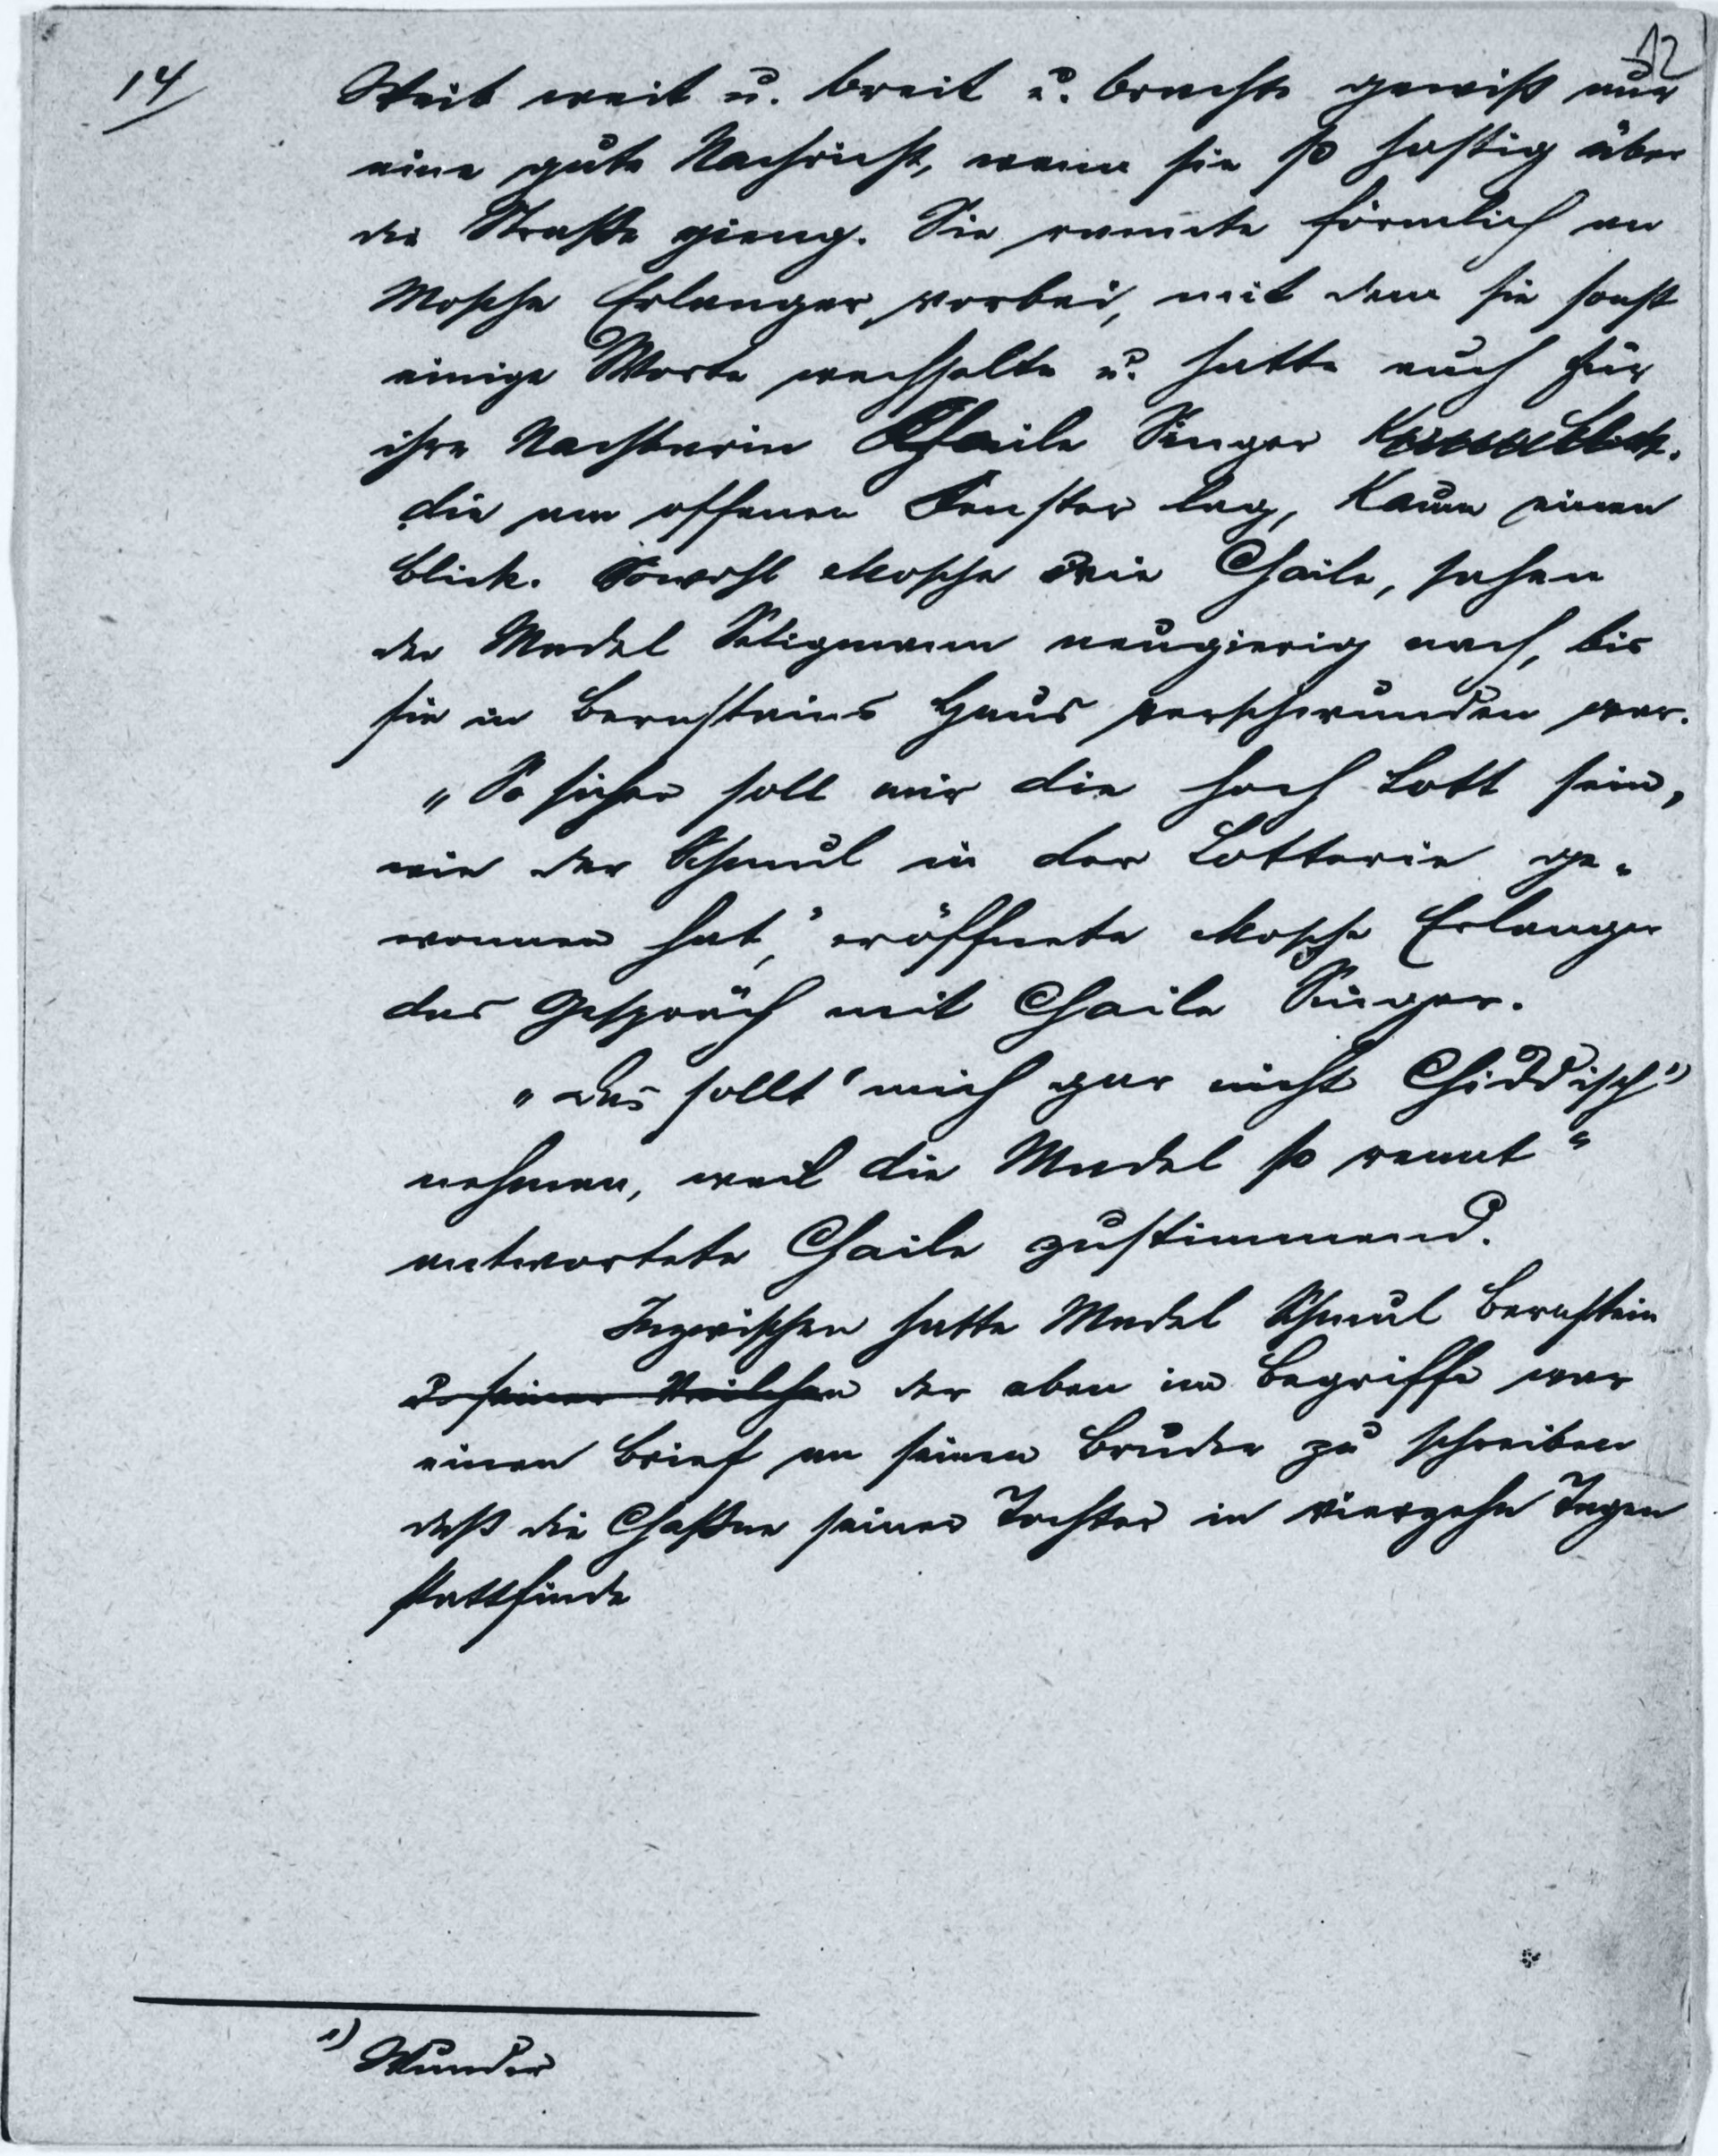 12
14/
Weib weit u. breit u. brachte gewiß nur
eine gute Nachricht, wenn sie so hastig über
die Straße gieng. Sie rannte förmlich an
Mosche Erlanger vorbei, mit dem sie sonst
einige Worte wechselte u. hatte auch für
ihre Nachbarin Chaile Singer
die am offenen Fenster lag, kaum einen
Blick. Sowohl Mosche wie Chaile, sahen
der Madel Seligmann neugierig nach, bis
sie in Bernsteins Haus verschwunden war.
„So sicher soll mir die hoch Lott sein,
wie der Schmul in der Lotterie ge-
wonnen hat," eröffnete Mosche Erlanger
das Gespräch mit Chaile Singer.
„Das sollt' mich gar nicht Chiddisch 1)
nehmen, weil die Madel so rennt"
antwortete Chaile zustimmend.
Inzwischen hatte Madel Schmul Bernstein
u. seiner Veilchen der eben im Begriffe war
einen Brief an seinen Bruder zu schreiben
daß die Chaßne seiner Tochter in vierzehn Tagen
stattfinde
1) Wunder